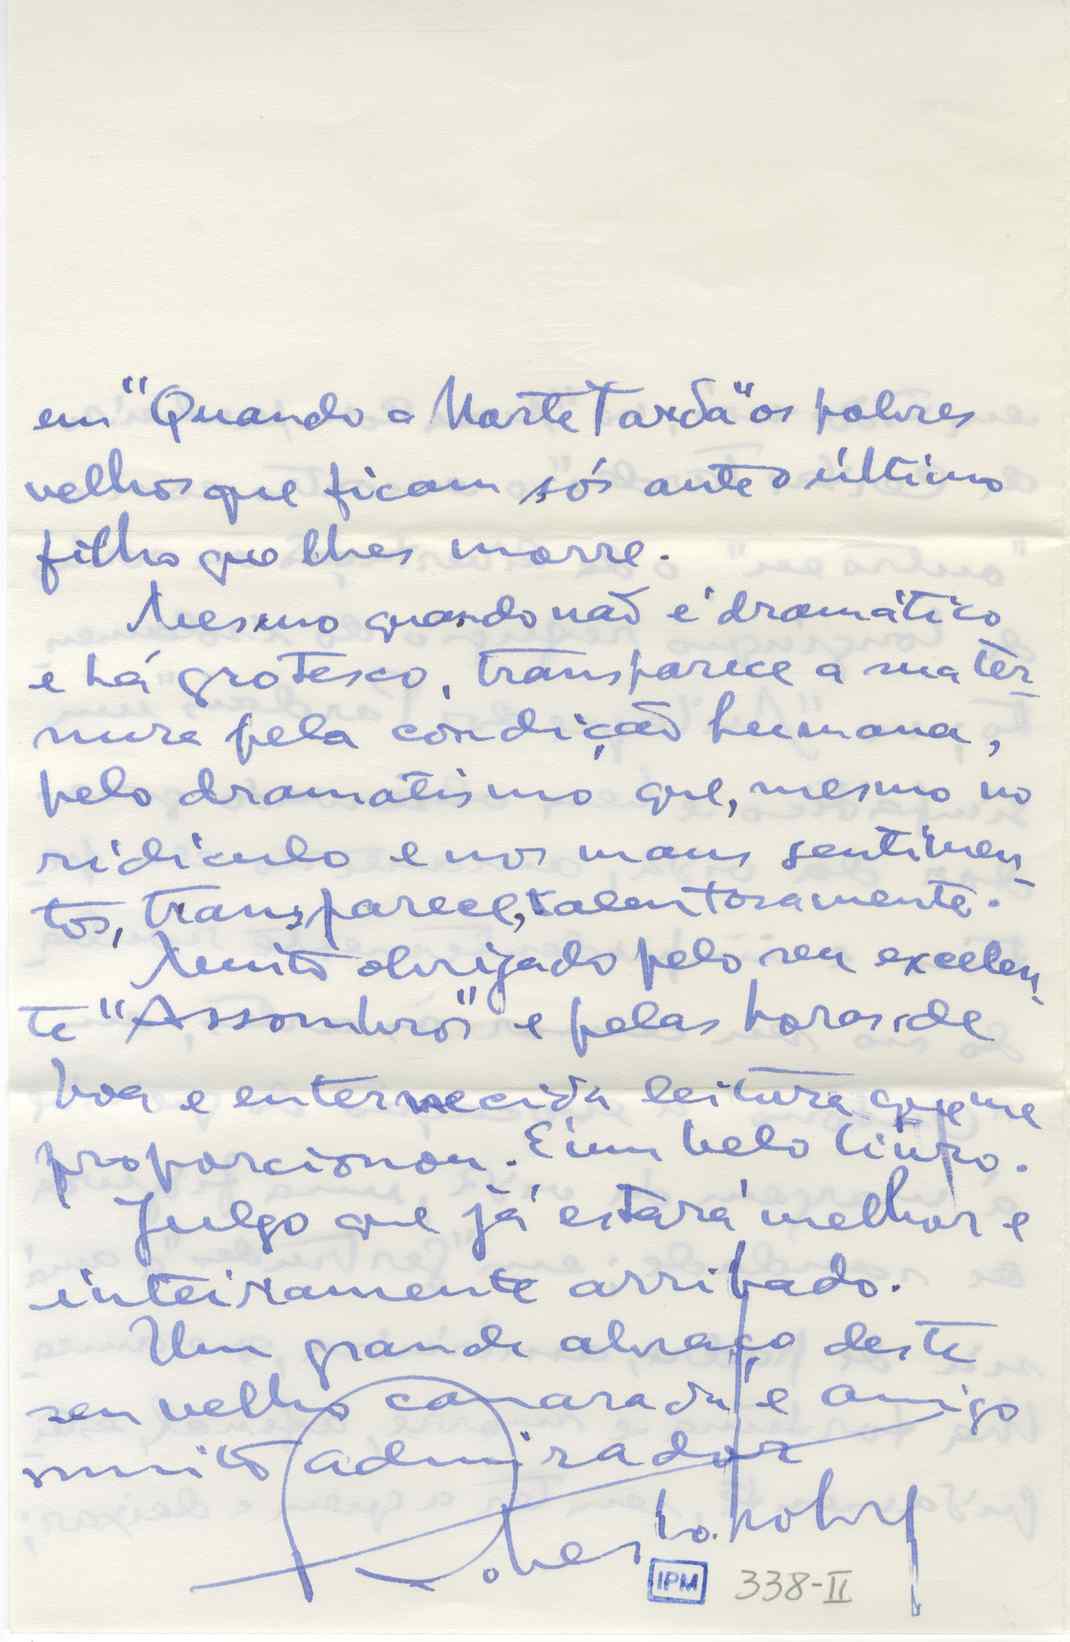 em "Quando a Morte Tarda" os pobres
velhos que ficam sós ante o último
filho que lhes morre.
Mesmo quando não é dramático
e há grotesco, transparece a sua ter-
nura pela condição humana,
pelo dramatismo que, mesmo no
ridiculo e nos maus sentimen-
tos, transparece, talentosamente.
Muito obrigado pelo seu excelen-
te "Assombros" e pelas horas de
boa e enternecida leitura que me
proporcionou. É um belo livro.
Julgo que já estará melhor e
inteiramente arribado.
Um grande abraço deste
seu velho camarada e amigo
muito admirador
Nobre
IPM
338-II